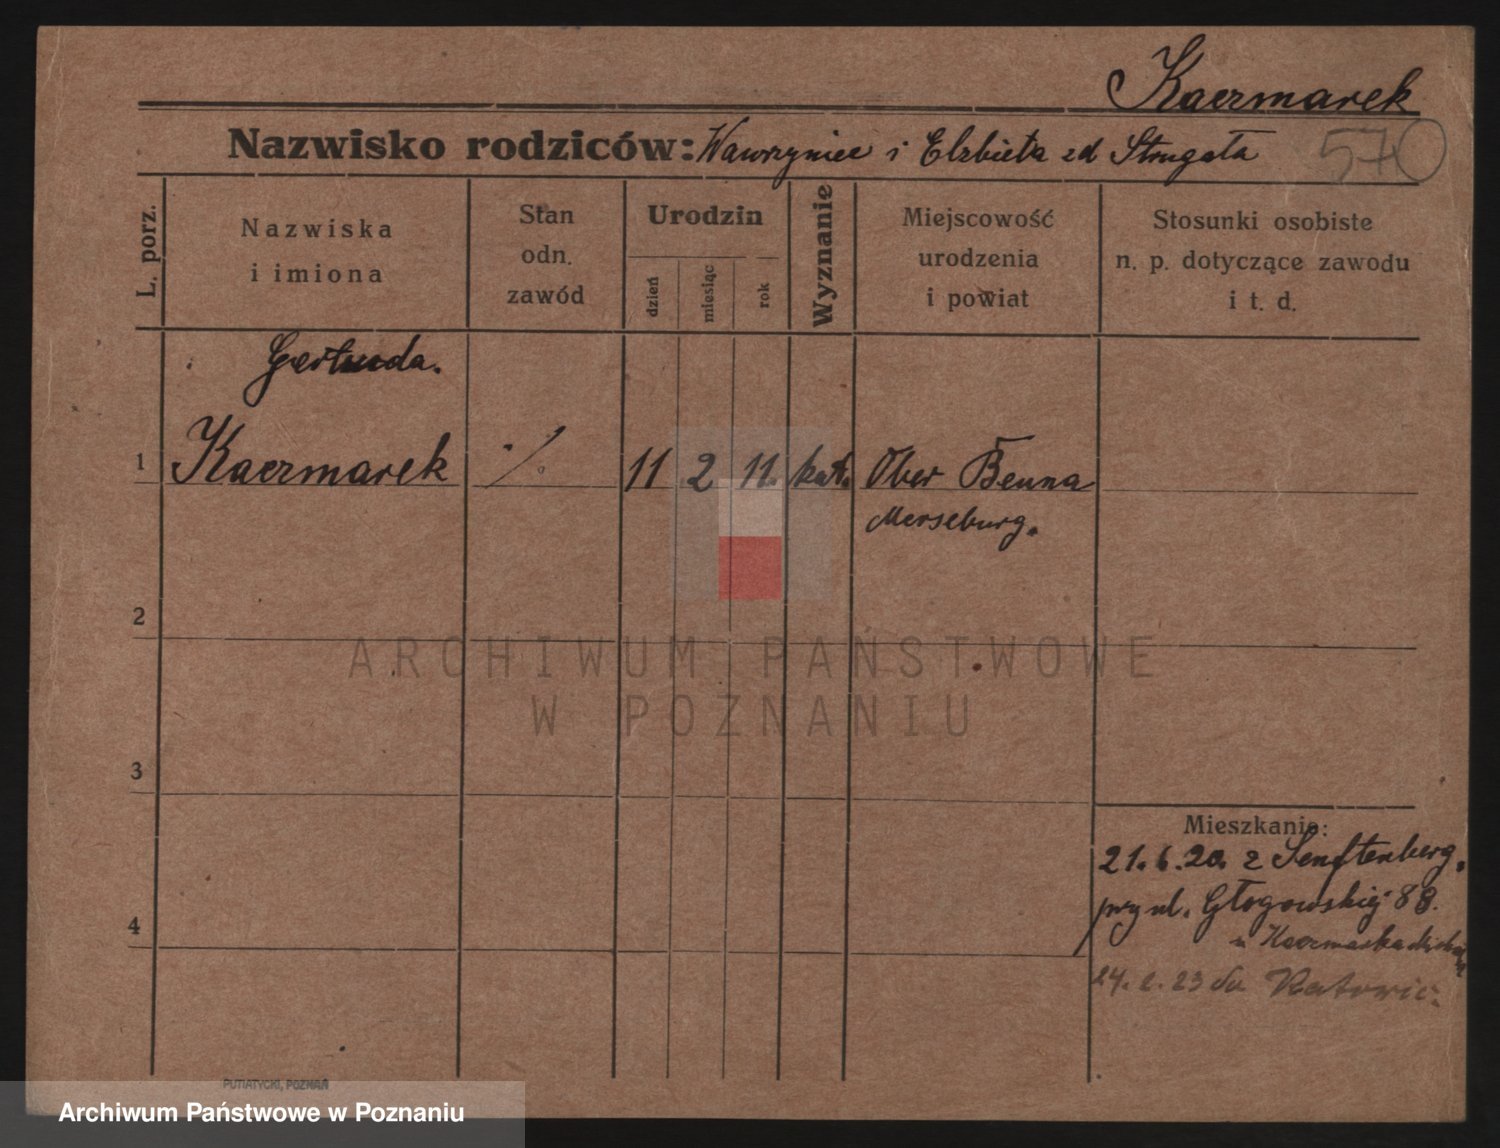 Kaczmarek
Nazwisko rodziców: Wawrzyniec i Elzbieta zd Strugała
570
L. porz.
Nazwiska
i imiona
Stan
odn.
zawód
Urodzin
dzień
miesiąc
rok
Wyznanie
Miejscowość
urodzenia
i powiat
Stosunki osobiste
n. p. dotyczące zawodu
i t. d.
Gertruda.
1 Kaczmarek ·/. 11 2 11. kat. Ober Beuna
Merseburg.
2
3
4
Mieszkanie:
21.6.20. z Senftenberg.
przy ul. Głogowskiej 88.
u Kaczmarka
24. 2. 23 do Katowic
PUTIATYCKI, POZNAŃ
ARCHIWUM PAŃSTWOWE
W POZNANIU
Archiwum Państwowe w Poznaniu